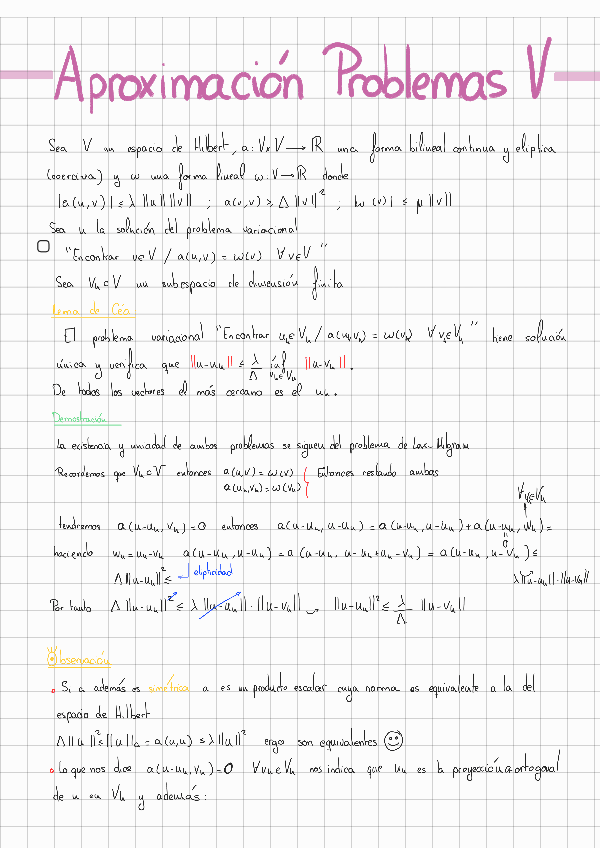 Aproximación Problemas V
Sea V un espacio de Hilbert, a: V×V → ℝ una forma bilineal continua y eliptica
(coerciva) y ω una forma lineal ω: V→ℝ donde
|a(u,v)| ≤ λ ||u|| ||v|| ; a(v,v) ≥ Λ ||v||² ; |ω(v)| ≤ μ ||v||
Sea u la solución del problema variacional
"Encontrar u∈V / a(u,v) = ω(v) ∀v∈V"
Sea Vₕ⊂V un subespacio de dimensión finita
Lema de Céa
El problema variacional "Encontrar uₕ∈Vₕ / a(uₕ,vₕ) = ω(vₕ) ∀vₕ∈Vₕ" tiene solución
única y verifica que ||u-uₕ|| ≤ λ/Λ ínf vₕ∈Vₕ ||u-vₕ||.
De todos los vectores el más cercano es el uₕ.
Demostración
La existencia y unicidad de ambos problemas se siguen del problema de Lax-Milgram
Recordemos que Vₕ⊂V entonces a(u,v) = ω(v) Entonces restando ambas
a(uₕ,vₕ) = ω(vₕ)
∀vₕ∈Vₕ
tendremos a(u-uₕ, vₕ) = 0 entonces a(u-uₕ, u-uₕ) = a(u-uₕ, u-uₕ) + a(u-uₕ, wₕ) =
0
haciendo wₕ = uₕ-vₕ a(u-uₕ, u-uₕ) = a(u-uₕ, u-uₕ+uₕ-vₕ) = a(u-uₕ, u-vₕ) ≤
Λ||u-uₕ||² ≤ elipticidad λ||u-uₕ||·||u-vₕ||
Por tanto Λ||u-uₕ||² ≤ λ||u-uₕ||·||u-vₕ|| → ||u-uₕ||² ≤ λ/Λ ||u-vₕ||
Observación
• Si a además es simétrica a es un producto escalar cuya norma es equivalente a la del
espacio de Hilbert
Λ||u||² ≤ ||u||ₐ = a(u,u) ≤ λ||u||² ergo son equivalentes ☺
• Lo que nos dice a(u-uₕ,vₕ) = 0 ∀vₕ∈Vₕ nos indica que uₕ es la proyección a-ortogonal
de u en Vₕ y además: